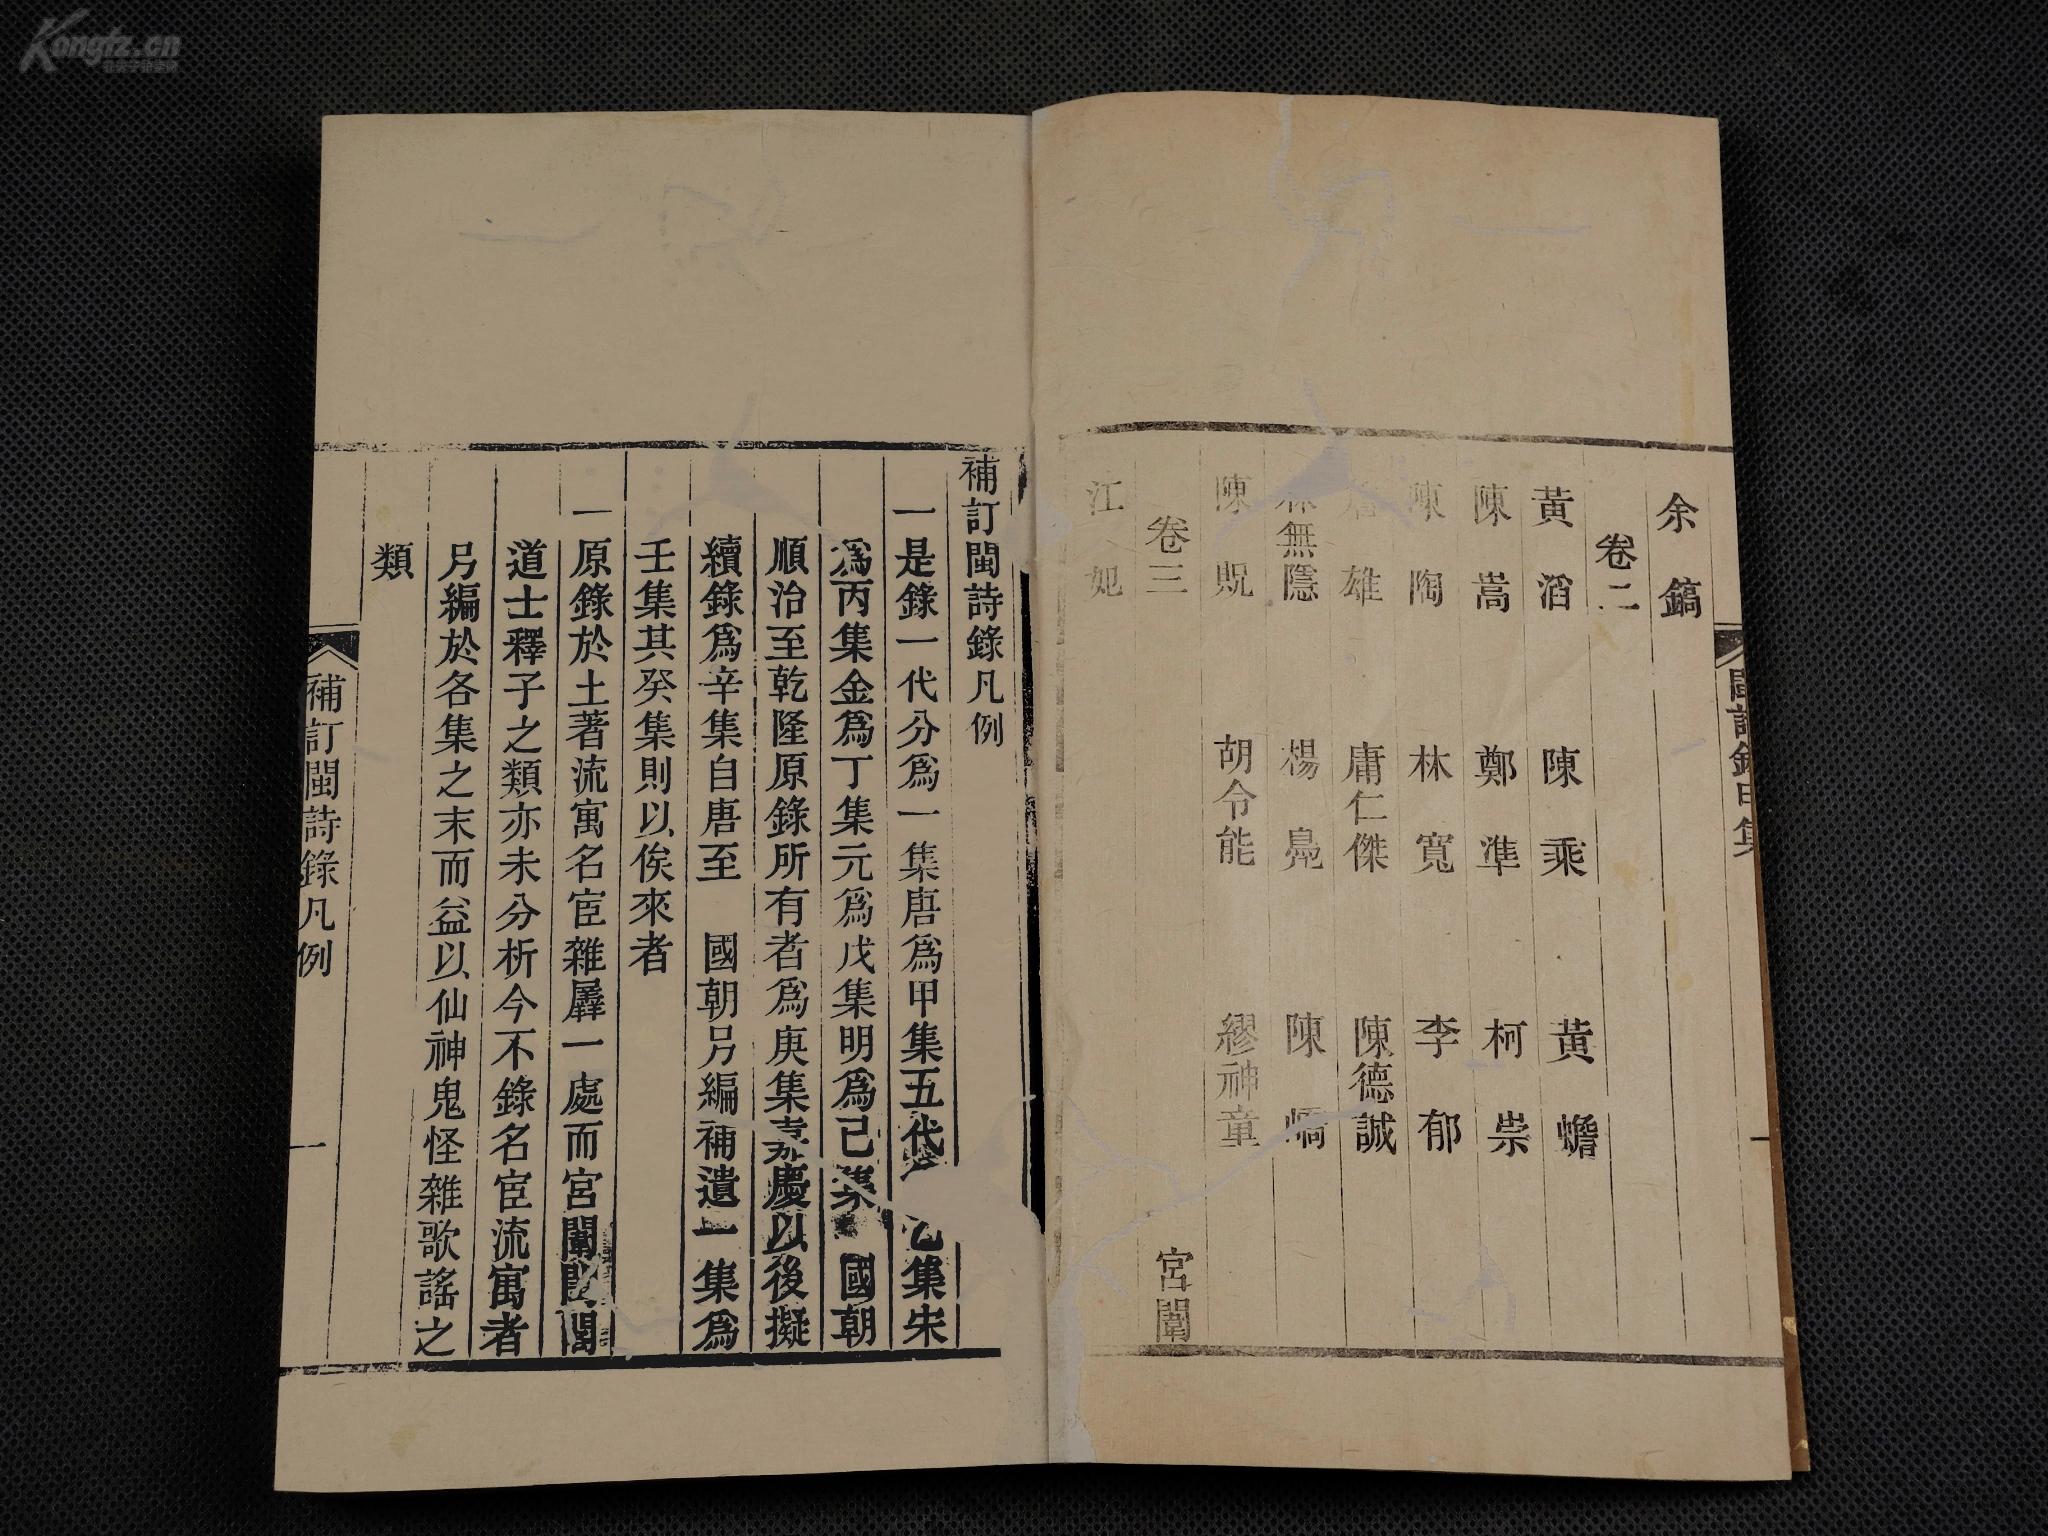 余鎬
卷二
黃滔 陳乘 黃蟾
陳嵩 鄭準 柯崇
陳陶 林寬 李郁
詹雄 庸仁傑 陳德誠
無隱 楊鳧 陳嶠
陳貺 胡令能 繆神童
卷三 宮闈
江妃
補訂閩詩錄凡例
一是錄一代分爲一集唐爲甲集五代 乙集宋
爲丙集金爲丁集元爲戊集明爲己集 國朝
順治至乾隆原錄所有者爲庚集嘉慶以後擬
續錄爲辛集自唐至 國朝另編補遺一集爲
壬集其癸集則以俟來者
一原錄於土著流寓名宦雜羼一處而宮闈閨閣
道士釋子之類亦未分析今不錄名宦流寓者
另編於各集之末而益以仙神鬼怪雜歌謠之
類
補訂閩詩錄凡例
一
Kongfz.cn